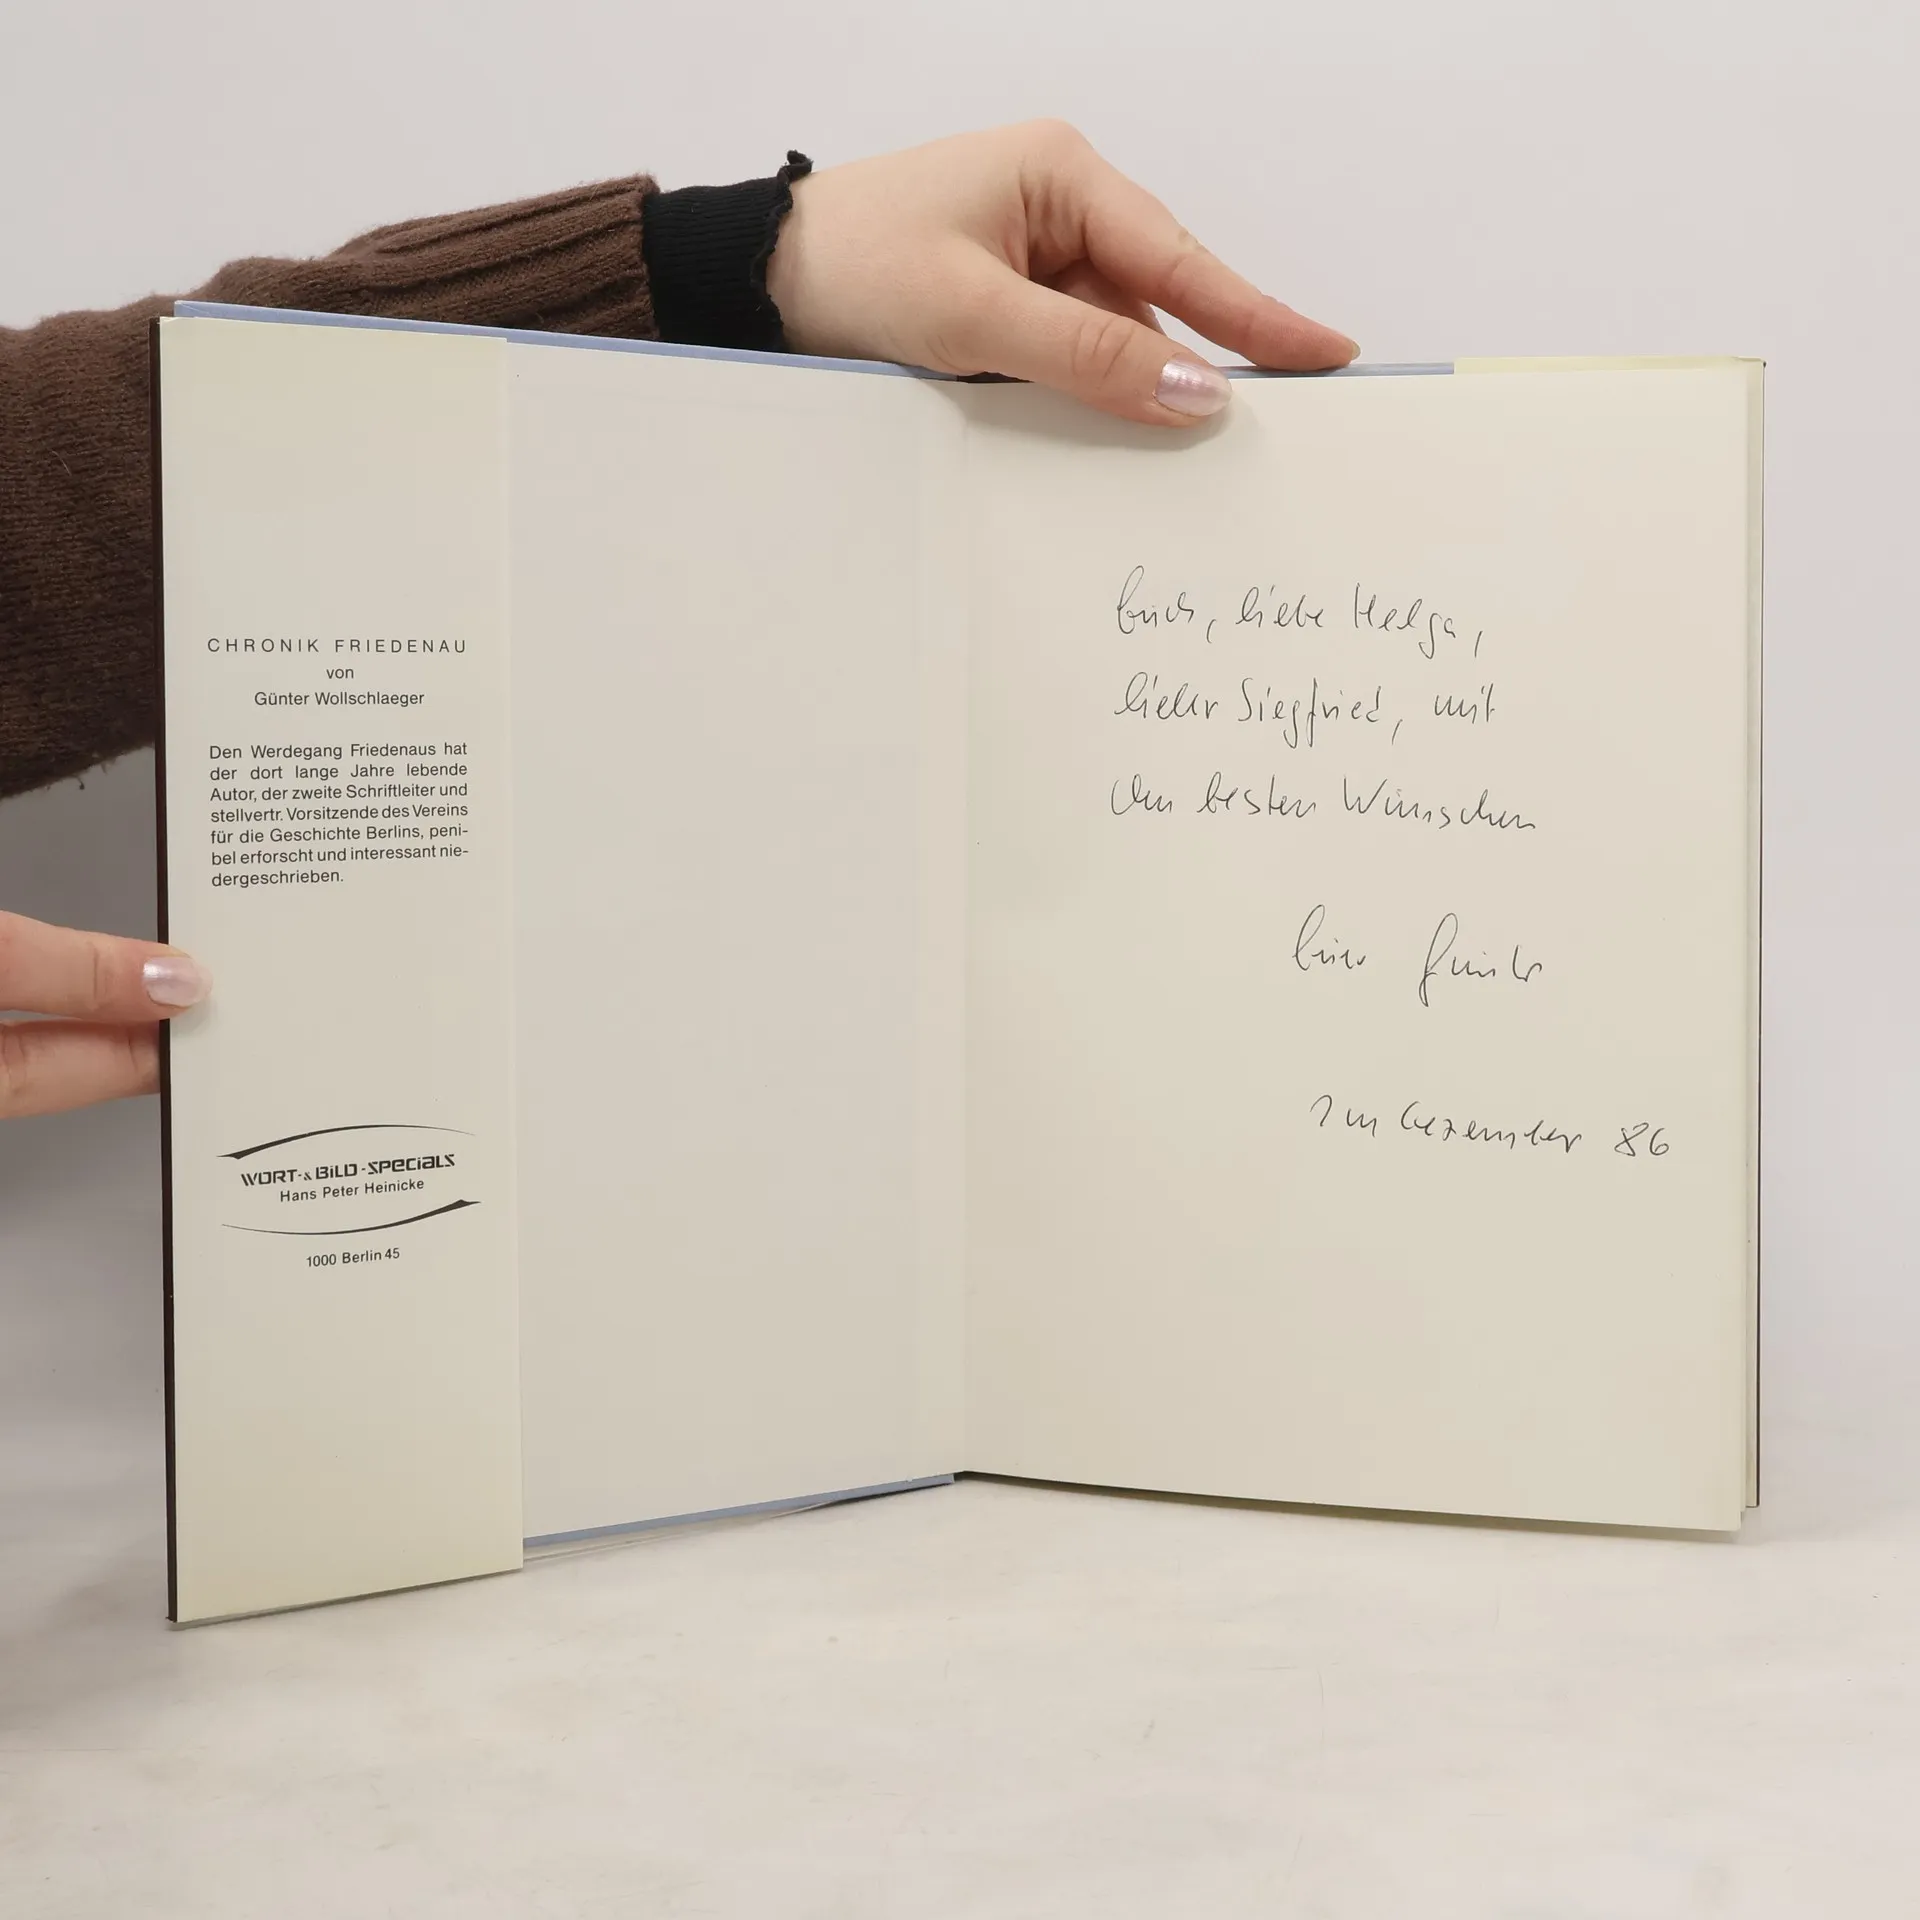 CHRONIK FRIEDENAU
von
Günter Wollschlaeger
Den Werdegang Friedenaus hat
der dort lange Jahre lebende
Autor, der zweite Schriftleiter und
stellvertr. Vorsitzende des Vereins
für die Geschichte Berlins, peni-
bel erforscht und interessant nie-
dergeschrieben.
WORT-&BiLD-SPECiALS
Hans Peter Heinicke
1000 Berlin 45
Euch, liebe Helga,
lieber Siegfried, mit
den besten Wünschen
Euer Günter
Im Dezember 86